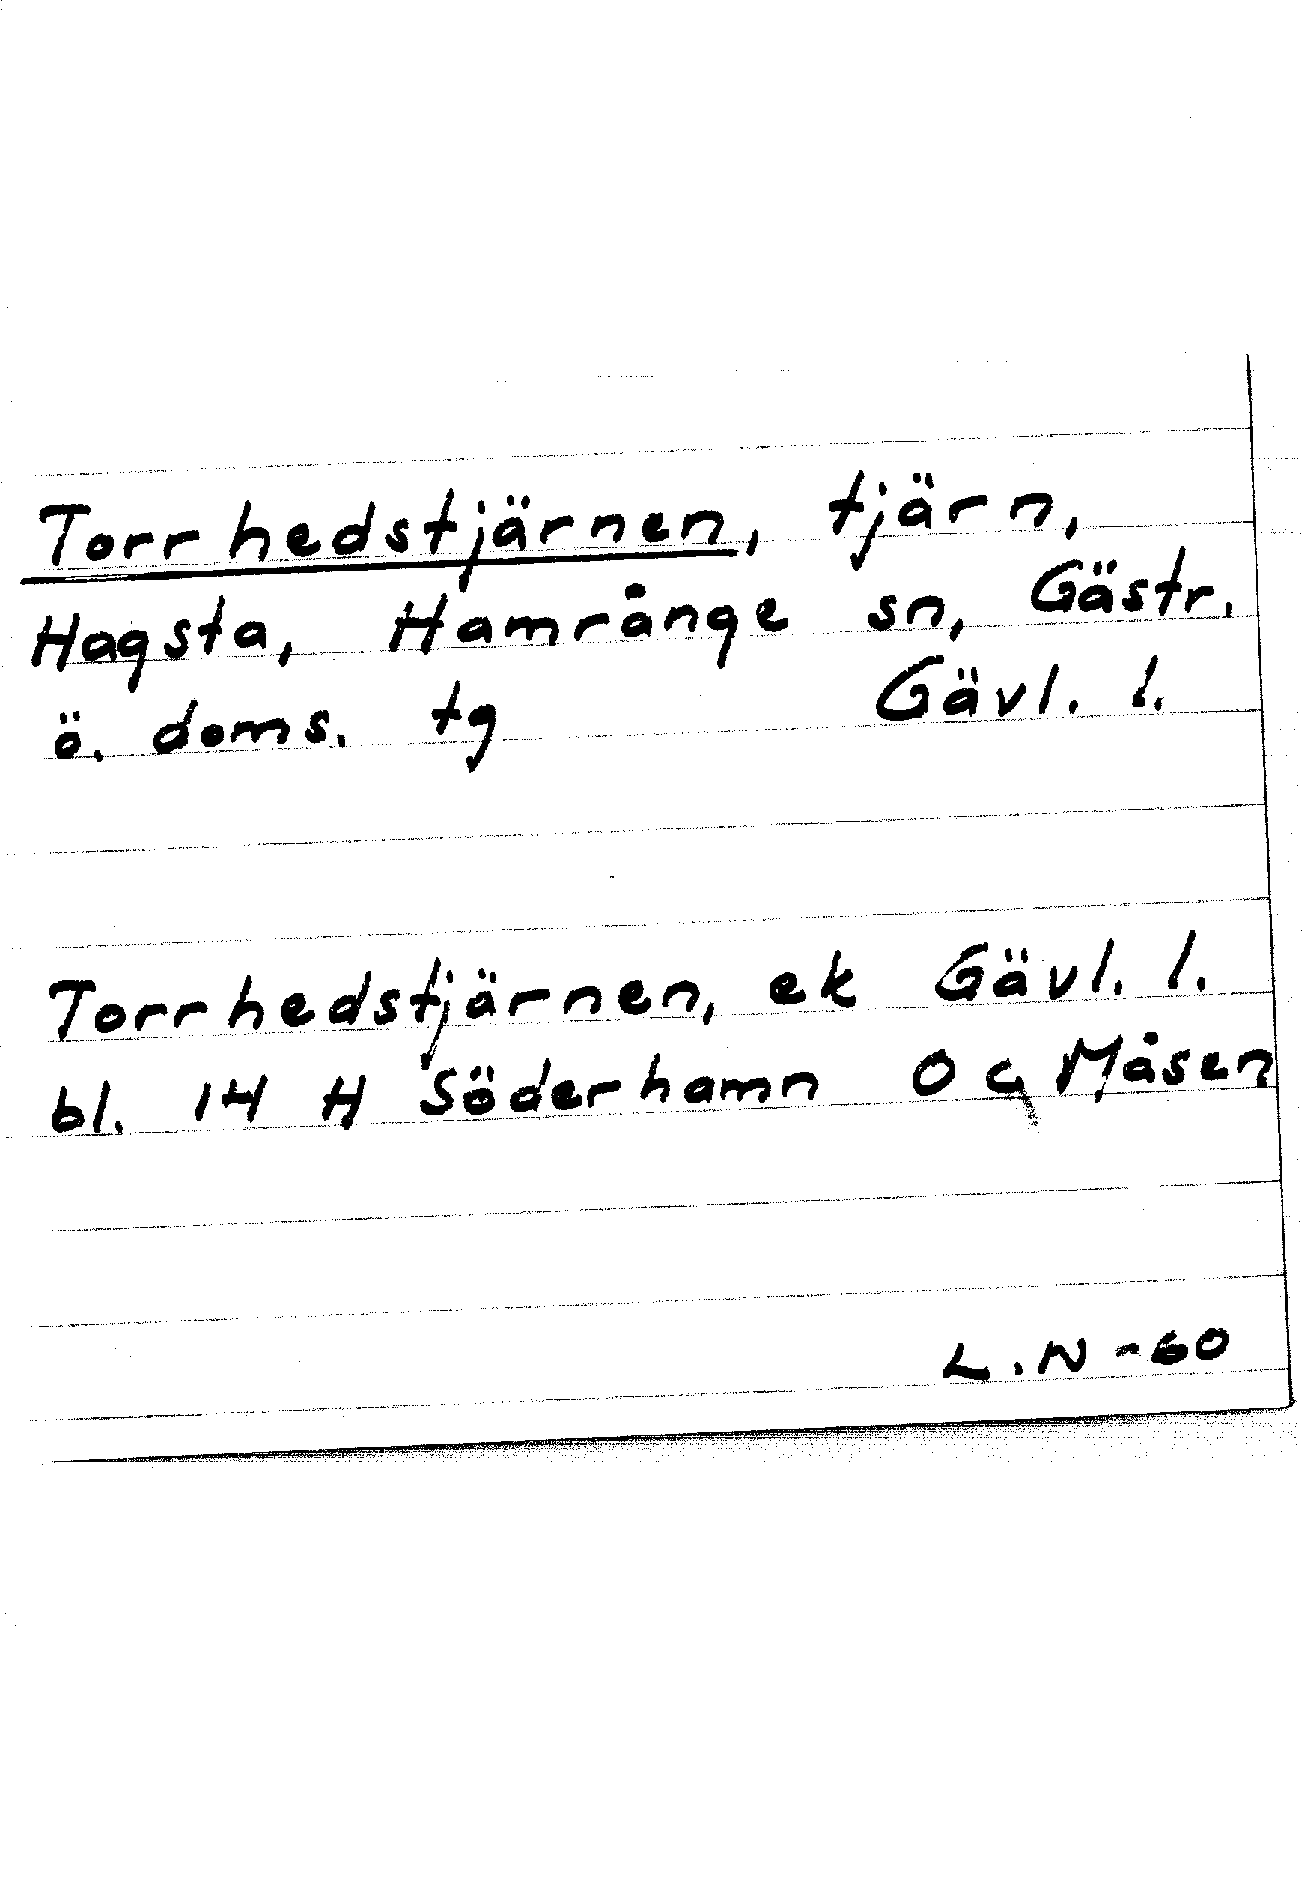 Torrhedstjärnen, tjärn,
Hagsta, Hamrånge sn, Gästr.
ö. doms. tg Gävl. l.
Torrhedstjärnen, ek Gävl. l.
bl. 14 H Söderhamn Oc, Måsen
L.N -60